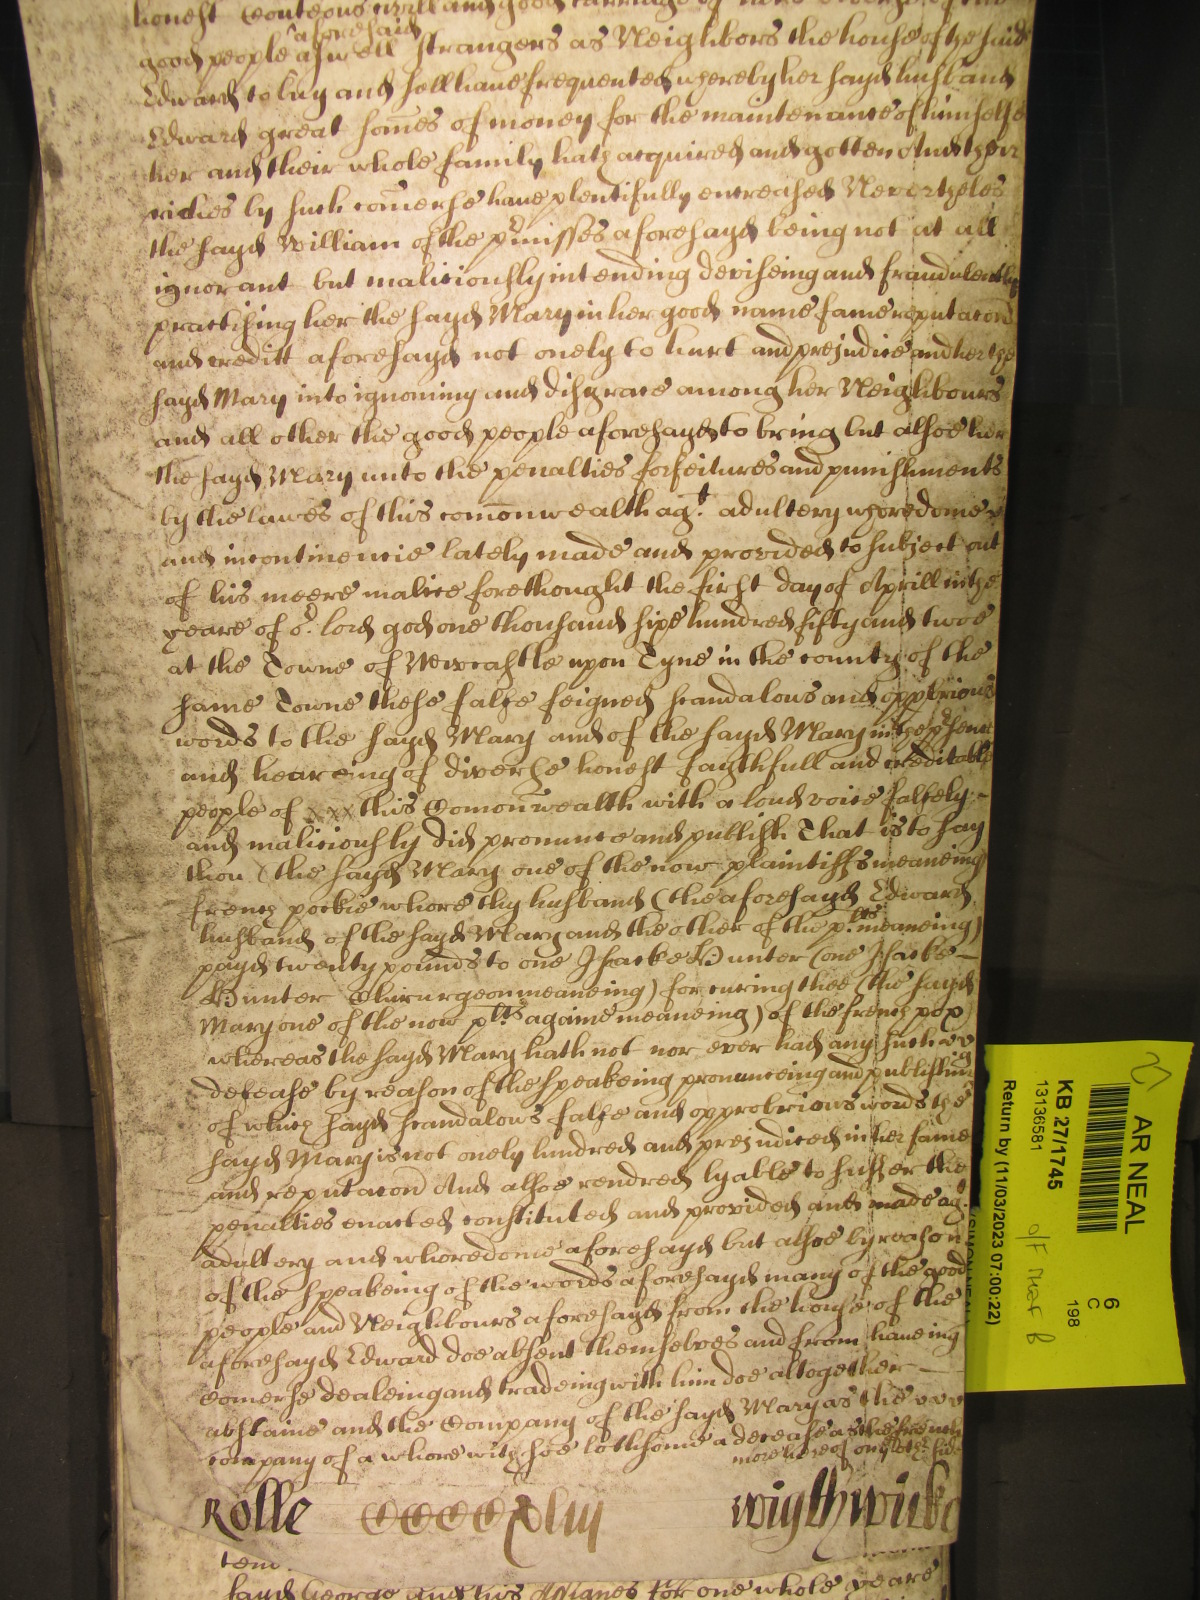 honest Conteous civill and good carriage of
aforesaid
good people aswell strangers as Neighbors the house of the said
Edward to buy and sell have frequented whereby her sayd husband
Edward great som̄es of money for the maintenance of himselfe
her and their whole family hath acquired and gotten And their
riches by such com̄erse have plentifully encreased Neverthelės
the sayd William of the p'misses aforesayd being not at all
ignorant but maliciously intending deviseing and fraudulently
practising her the sayd Mary in her good name fame reputac̄on
and creditt aforesayd not onely to hurt and prejudice and her the
sayd Mary into ignominy and disgrace among her Neighbours
and all other the good people aforesayd to bring but alsoe her
the sayd Mary unto the penalties forfeitures and punishments
by the lawes of this com̄onwealth agt. adultery whoredome
and incontinencie lately made and provided to subject out
of his meere malice forethought the first day of Aprill in the
yeare of or. lord god one thousand sixe hundred fifty and twoe
at the Towne of Newcastle upon Tyne in the county of the
same Towne these false feigned scandalous and opp'brious
words to the sayd Mary and of the sayd Mary in the p'sence
and heareing of diverse honest faythfull and creditable
people of xxx this Com̄onwealth with a loud voice falsely -
and maliciously did pronunce and publish That is to say
thou (the sayd Mary one of the now plaintiffs meaneing)
french pockie whore thy husband (the aforesayd Edward
husband of the sayd Mary and the other of the plts meaneing)
payd twenty pounds to one Isacke Bunter (one Isacke -
Bunter Chirurgeon meaneing) for cureing thee (the sayd
Mary one of the now plts againe meaneing) of the french pox
whereas the sayd Mary hath not nor ever had any such
desease by reason of the speakeing pronunceing and publishing
of which sayd scandalous false and opprobrious words the
sayd Mary is not onely hindred and prejudiced in her fame
and reputac̄on And alsoe rendred lyable to suffer the
penalties enacted constituted and provided and made agt.
adultery and whoredome aforesayd but alsoe by reason
of the speakeing of the words aforesayd many of the good
people and Neighbours aforesayd from the house of the
aforesayd Edward doe absent themselves and from haveing
Com̄erse dealeing and tradeing with him doe altogether -
abstaine and the Company of the sayd Mary as the
company of a whore with soe lothsome a decease as the french
more hereof on ye other side
Rolle CCCCXliij Wigthwicke
tem.
sayd George and his Assignes for one whole yeare
AR NEAL
KB 27/1745
13136581
Return by (11/03/2023 07:00:22)
6
C
198
SIMON NEAL